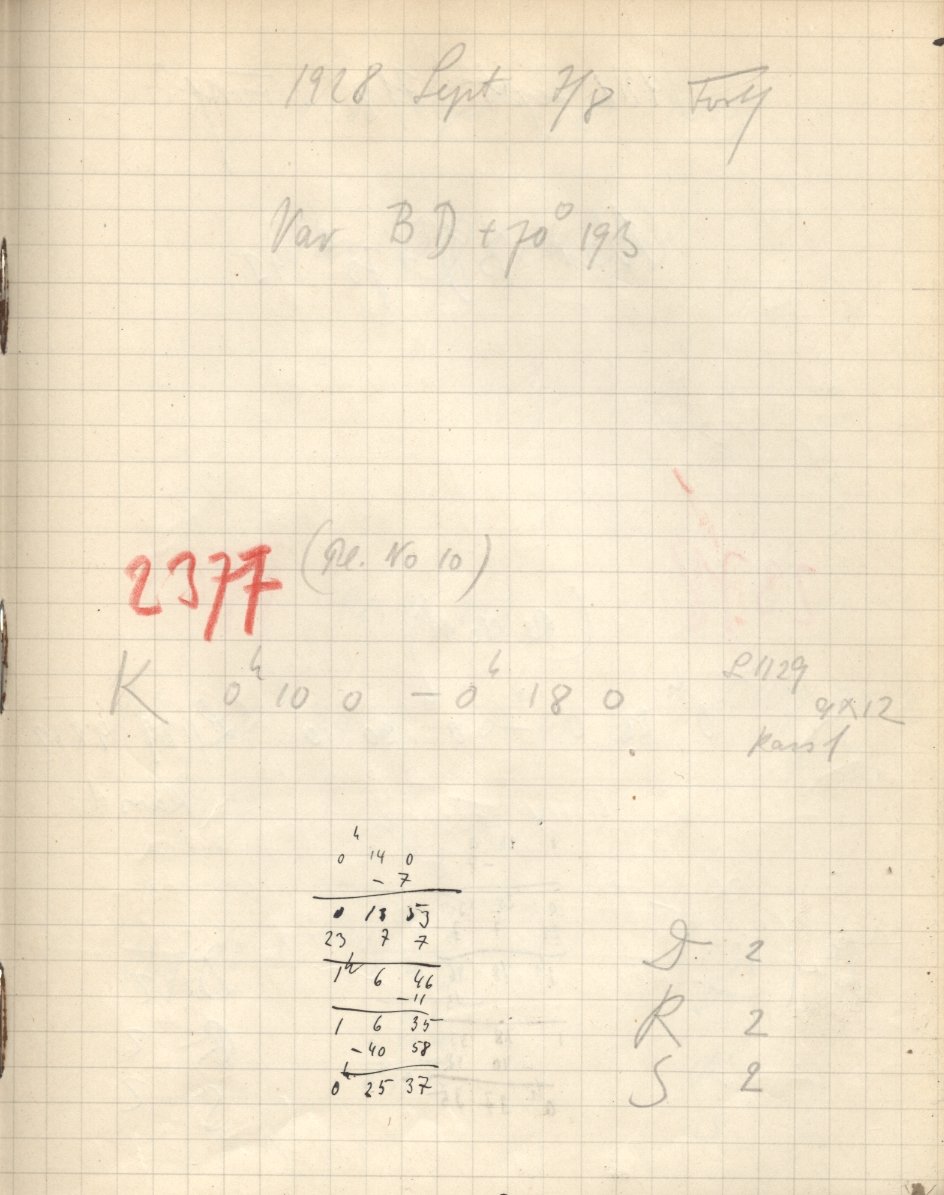 1928 Sept 7/8
Var BD + 70° 193
2377 (Pl. No 10)
K 0ʰ 10 0 – 0ʰ 18 0
9x12
0ʰ 14 0
– 7
0 13 53
23 7 7
1ʰ 6 46
– 11
1 6 35
– 40 58
0 25 37
D 2
R 2
S 2